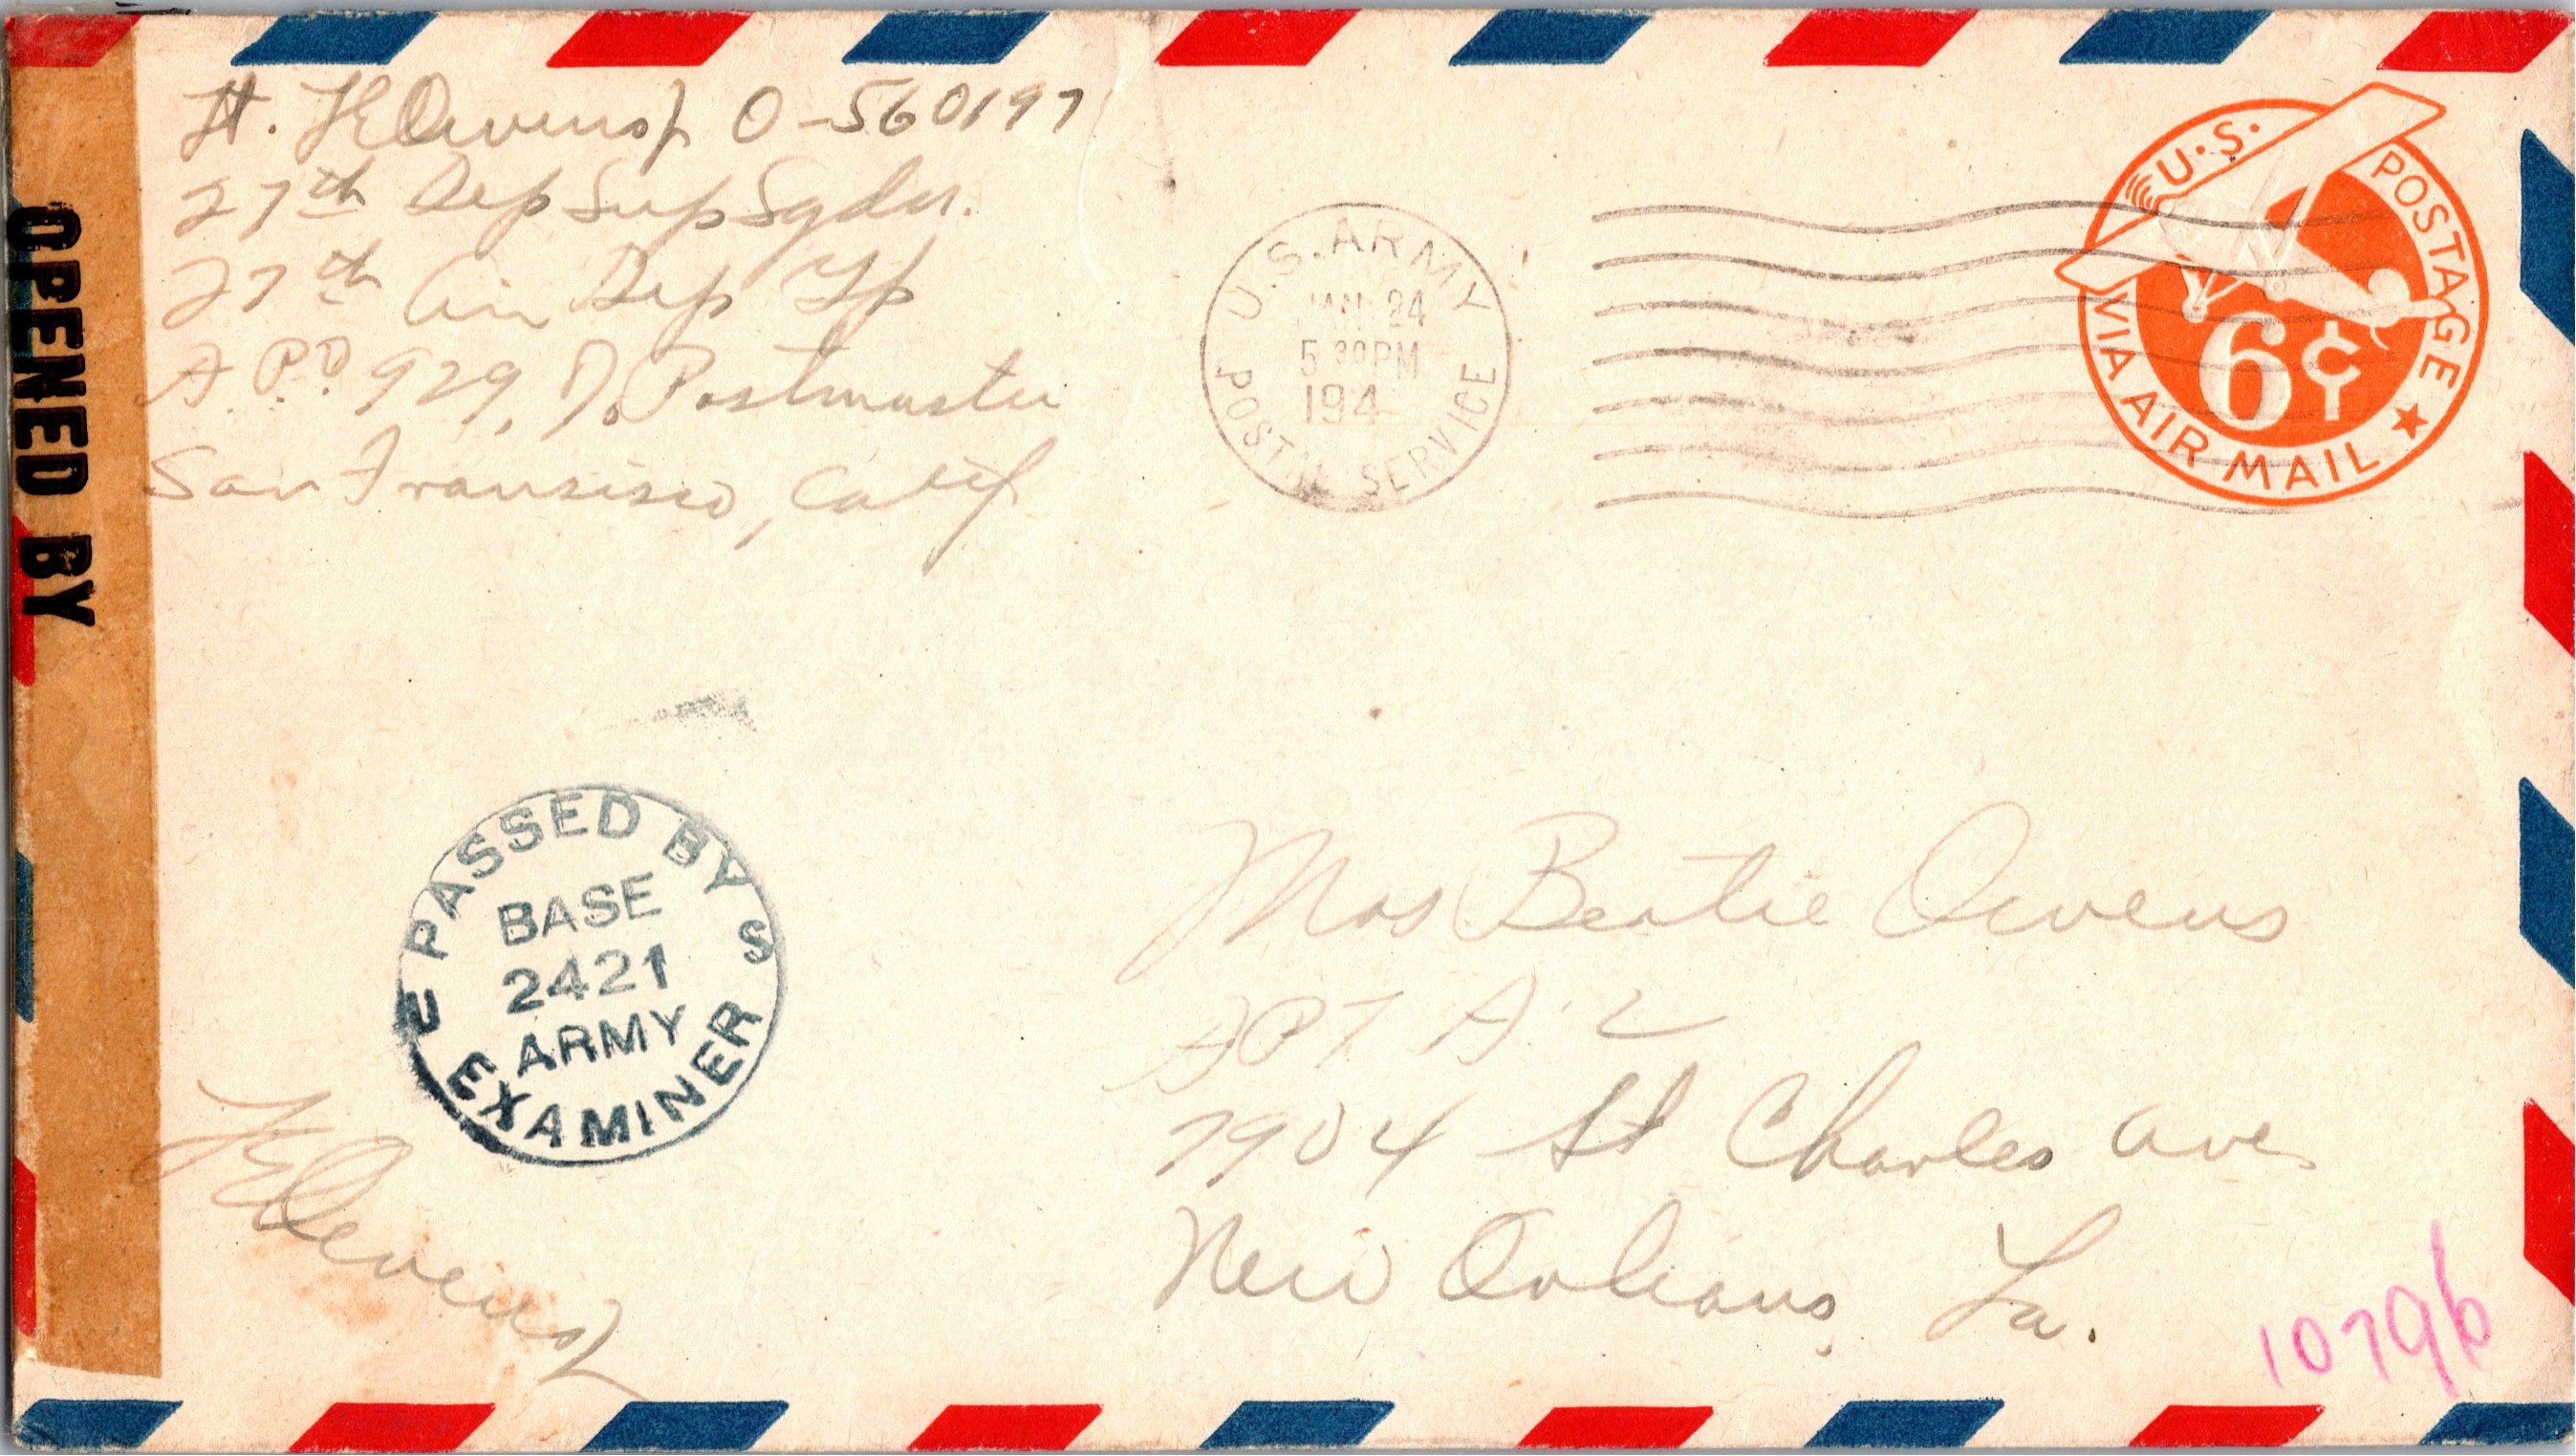 Lt. FEOwens Jr 0-560197
27th Dep Sup Sqdn.
27th Air Dep Gp
A.P.O 929, % Postmaster
San Fransisco, Calif
OPENED BY
U.S. ARMY
JAN 24
5 30PM
194
POSTAL SERVICE
U.S. POSTAGE
6¢
VIA AIR MAIL
PASSED BY
BASE
2421
ARMY
EXAMINER
U S
Mrs Beatie Owens
APT A-2
7904 St Charles Ave
New Orleans, La.
FEOwens Jr
10796